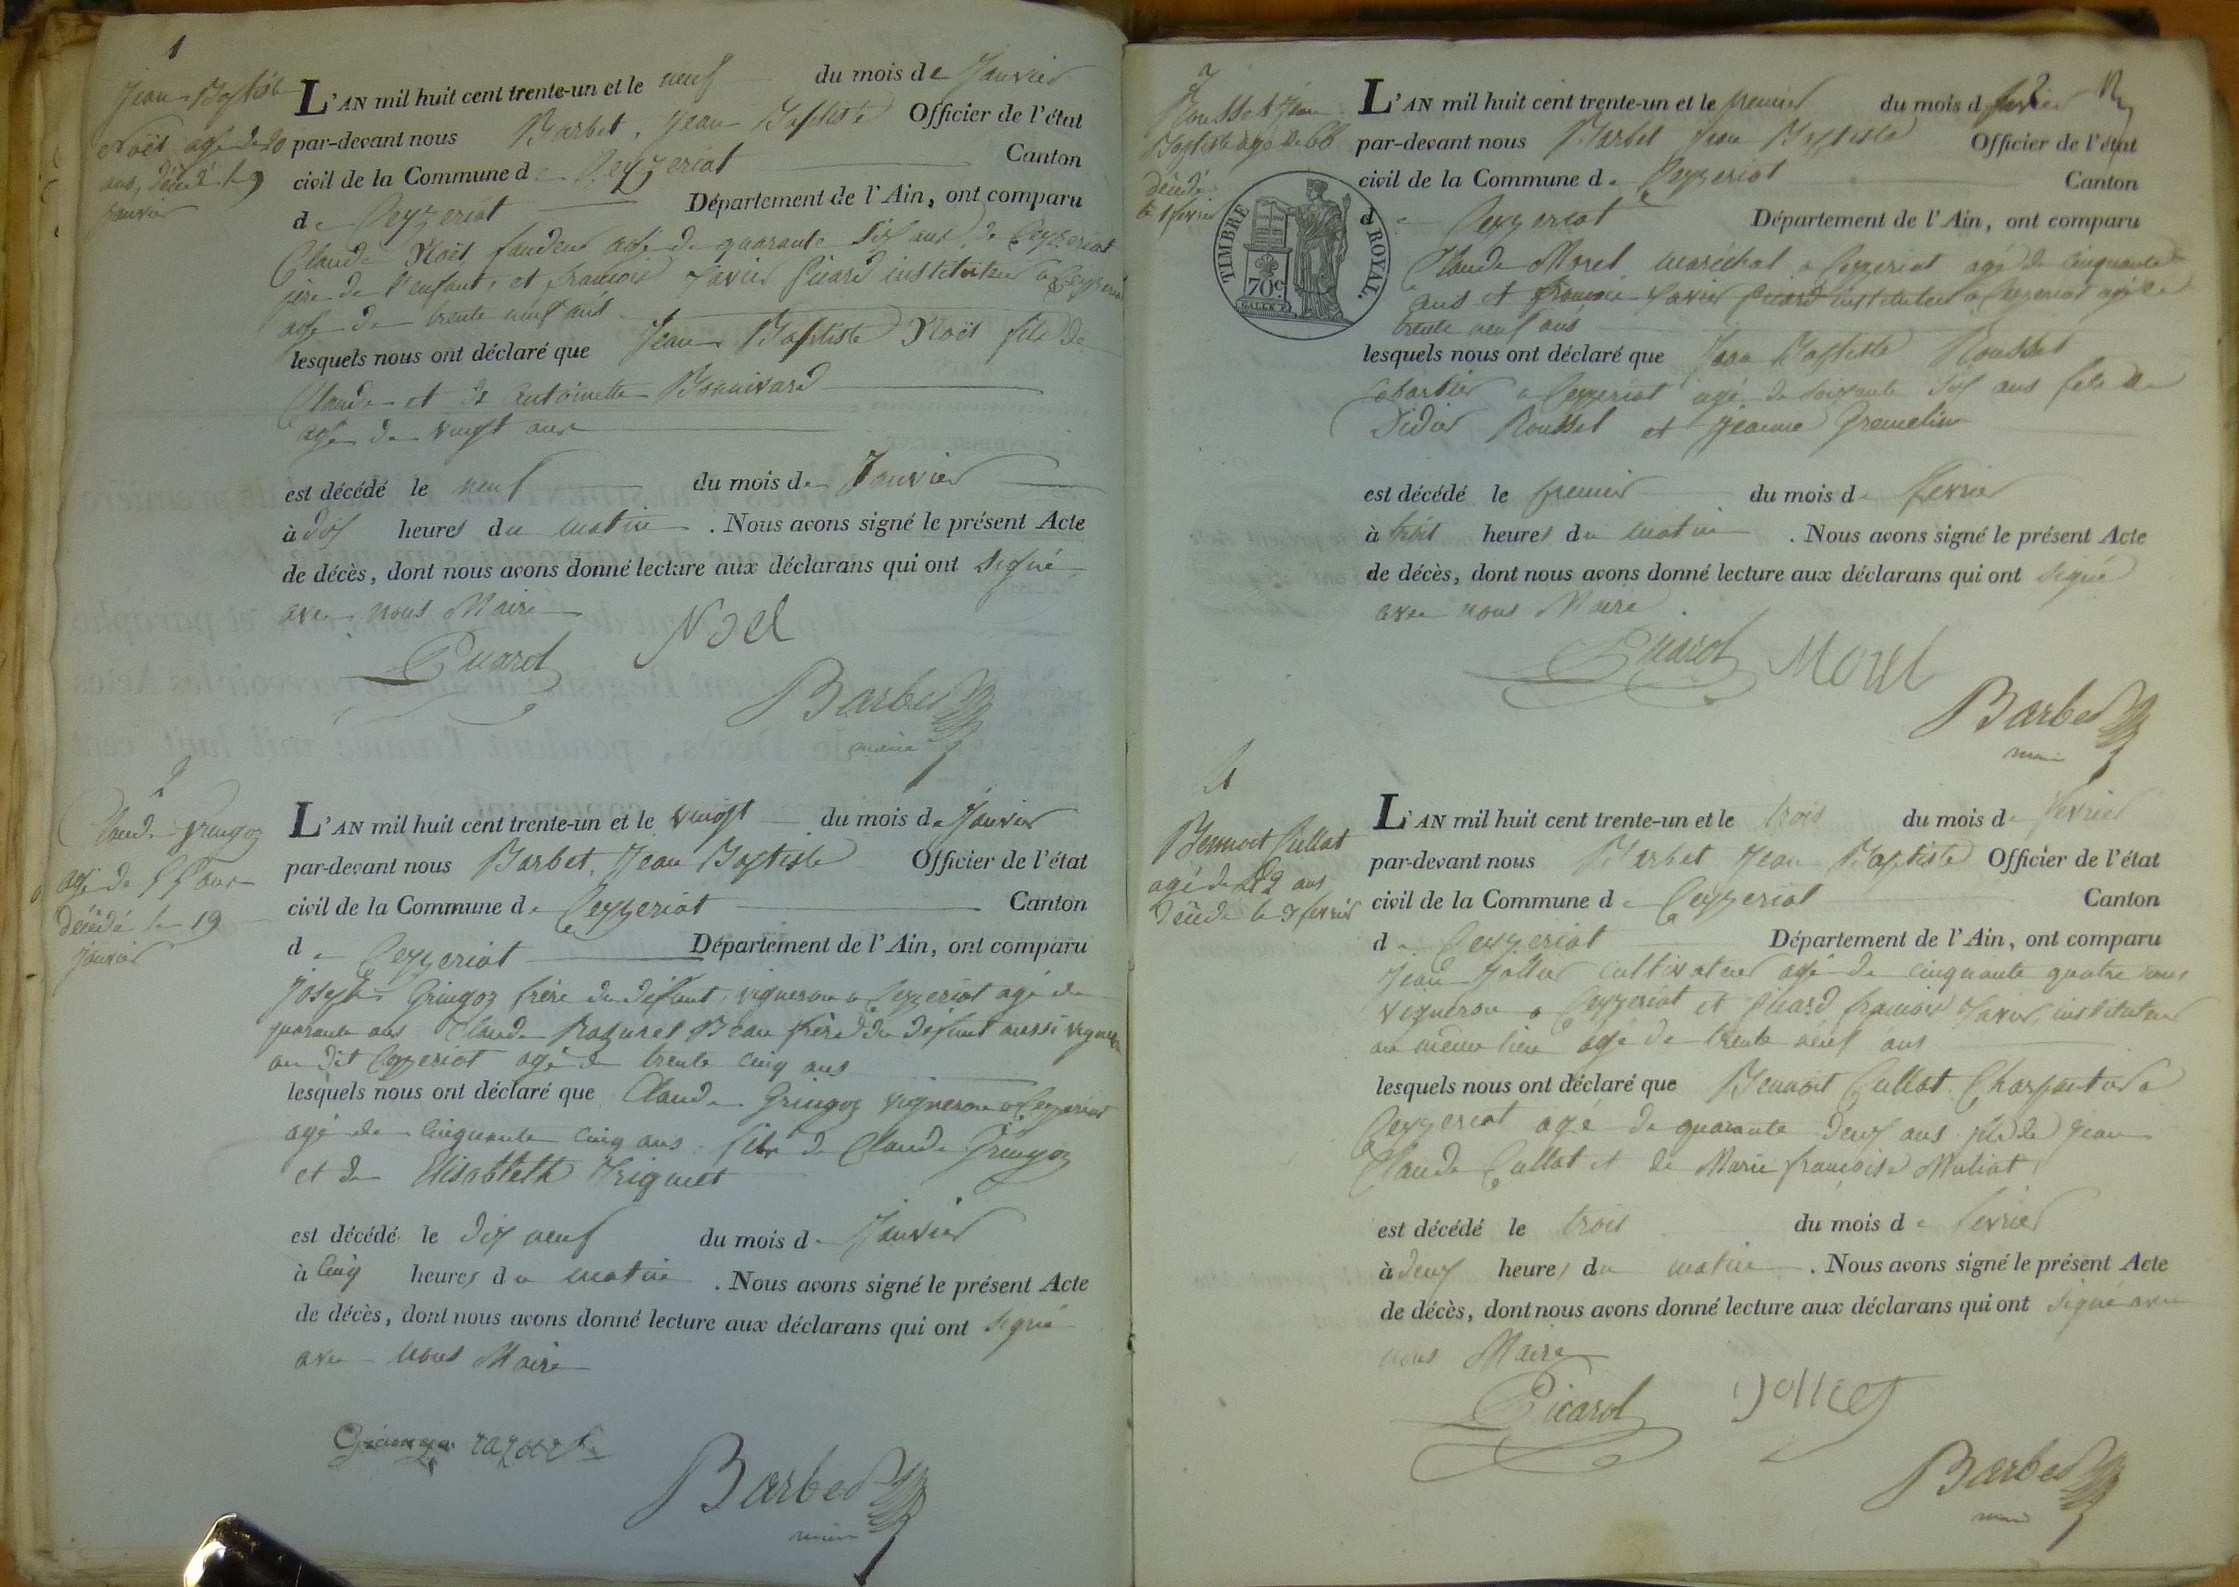 1
Jean Baptiste
Noël agé de 20
ans, décédé le 9
janvier
L'AN mil huit cent trente-un et le neuf du mois de Janvier
par-devant nous Barbet, Jean Baptiste Officier de l'état
civil de la Commune de Ceyzeriat Canton
de Ceyzeriat Département de l'Ain, ont comparu
Claude Noël agé de quarante six ans, de Ceyzeriat
père de l'enfant, et françois Xavier Picard instituteur a Ceyzeriat
agé de trente neuf ans
lesquels nous ont déclaré que Jean Baptiste Noël fils de
Claude et de Antoinette Bonnivard
agé de vingt ans
est décédé le neuf du mois de Janvier
à dix heures du matin . Nous avons signé le présent Acte
de décès, dont nous avons donné lecture aux déclarans qui ont signé
avec nous Maire
Picard Noel
Barbet
maire
2
Claude Gringoz
agé de 55 ans
décédé le 19
janvier
L'AN mil huit cent trente-un et le vingt du mois de Janvier
par-devant nous Barbet, Jean Baptiste Officier de l'état
civil de la Commune de Ceyzeriat Canton
de Ceyzeriat Département de l'Ain, ont comparu
Joseph Gringoz frère du défunt, vigneron a Ceyzeriat agé de
quarante ans Claude Razurel Beau frère du défunt aussi vigneron
au dit Ceyzeriat agé de trente cinq ans
lesquels nous ont déclaré que Claude Gringoz vigneron a Ceyzeriat
agé de cinquante cinq ans fils de Claude Gringoz
et de Elisabteth
est décédé le dix neuf du mois de Janvier
à cinq heures du matin . Nous avons signé le présent Acte
de décès, dont nous avons donné lecture aux déclarans qui ont signé
avec nous Maire
Barbet
maire
3
Rousset Jean
Baptiste agé de 66
décédé
le 1 fevrier
TIMBRE ROYAL.
70c
L'AN mil huit cent trente-un et le premier du mois d fevrier
par-devant nous Barbet Jean Baptiste Officier de l'état
civil de la Commune de Ceyzeriat Canton
de Ceyzeriat Département de l'Ain, ont comparu
Claude Morel maréchal a Ceyzeriat agé de cinquante
ans et françois Xavier Picard instituteur a Ceyzeriat agé de
trente neuf ans
lesquels nous ont déclaré que Jean Baptiste Rousset
a Ceyzeriat agé de soixante six ans fils de
Didier Rousset et Jeanne
est décédé le premier du mois de fevrier
à trois heures du matin . Nous avons signé le présent Acte
de décès, dont nous avons donné lecture aux déclarans qui ont signé
avec nous Maire
Picard Morel
Barbet
maire
4
Bennoit Cullat
agé de 42 ans
décédé le 3 fevrier
L'AN mil huit cent trente-un et le trois du mois de fevrier
par-devant nous Barbet Jean Baptiste Officier de l'état
civil de la Commune de Ceyzeriat Canton
de Ceyzeriat Département de l'Ain, ont comparu
Jean cultivateur agé de cinquante quatre ans
vigneron a Ceyzeriat et Picard françois Xavier, instituteur
au même lieu agé de trente neuf ans
lesquels nous ont déclaré que Bennoit Cullat Charpentier a
Ceyzeriat agé de quarante deux ans fils de Jean
Claude Cullat et de Marie françoise
est décédé le trois du mois de fevrier
à deux heures du matin . Nous avons signé le présent Acte
de décès, dont nous avons donné lecture aux déclarans qui ont signé avec
nous Maire
Picard
Barbet
maire